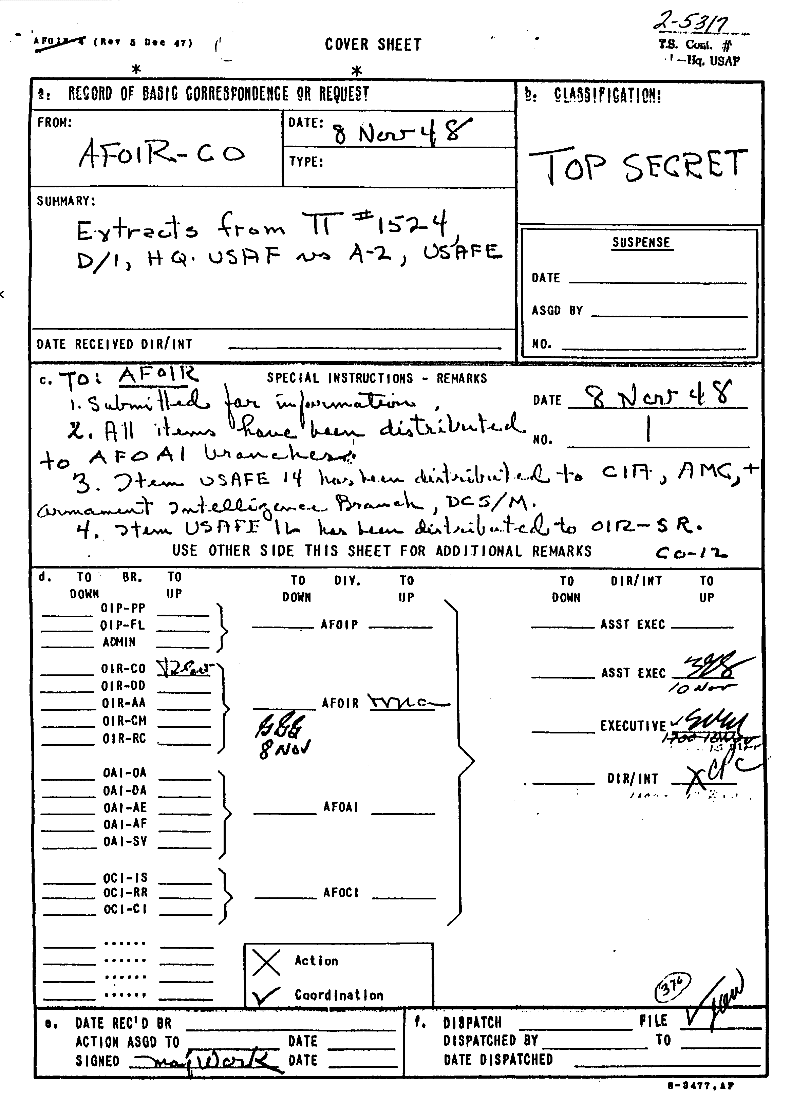 2-5317
AFOIR-4 (Rev 5 Dec 47)
COVER SHEET
T.S. Cont. #
-Hq. USAF
* *
a: RECORD OF BASIC CORRESPONDENCE OR REQUEST
b: CLASSIFICATION:
FROM: AFOIR-CO
DATE: 8 Nov 48
TYPE:
TOP SECRET
SUMMARY:
Extracts from TT #1524,
D/I, HQ. USAF vs A-2, USAFE
SUSPENSE
DATE
ASGD BY
NO.
DATE RECEIVED DIR/INT
c. TO: AFOIR SPECIAL INSTRUCTIONS - REMARKS
1. Submitted for information.
DATE 8 Nov 48
2. All items have been distributed
NO. 1
to AFOAI branches.
3. Item USAFE 14 has been distributed to CIA, AMC, +
Armament Intelligence Branch, DCS/M.
4. Item USAFE 16 has been distributed to OIR-SR.
USE OTHER SIDE THIS SHEET FOR ADDITIONAL REMARKS CO-12
d. TO BR. TO TO DIV. TO TO DIR/INT TO
DOWN UP DOWN UP DOWN UP
OIP-PP
OIP-FL AFOIP ASST EXEC
ADMIN
OIR-CO ASST EXEC
OIR-DD 10 Nov
OIR-AA AFOIR
OIR-CM EXECUTIVE
OIR-RC
8 NOV
OAI-OA DIR/INT
OAI-DA
OAI-AE AFOAI
OAI-AF
OAI-SV
OCI-IS
OCI-RR AFOCI
OCI-CI
......
...... X Action
......
...... ✓ Coordination
376
e. DATE REC'D BR
f. DISPATCH FILE
ACTION ASGD TO DATE
DISPATCHED BY TO
SIGNED DATE
DATE DISPATCHED
8-3477, AF